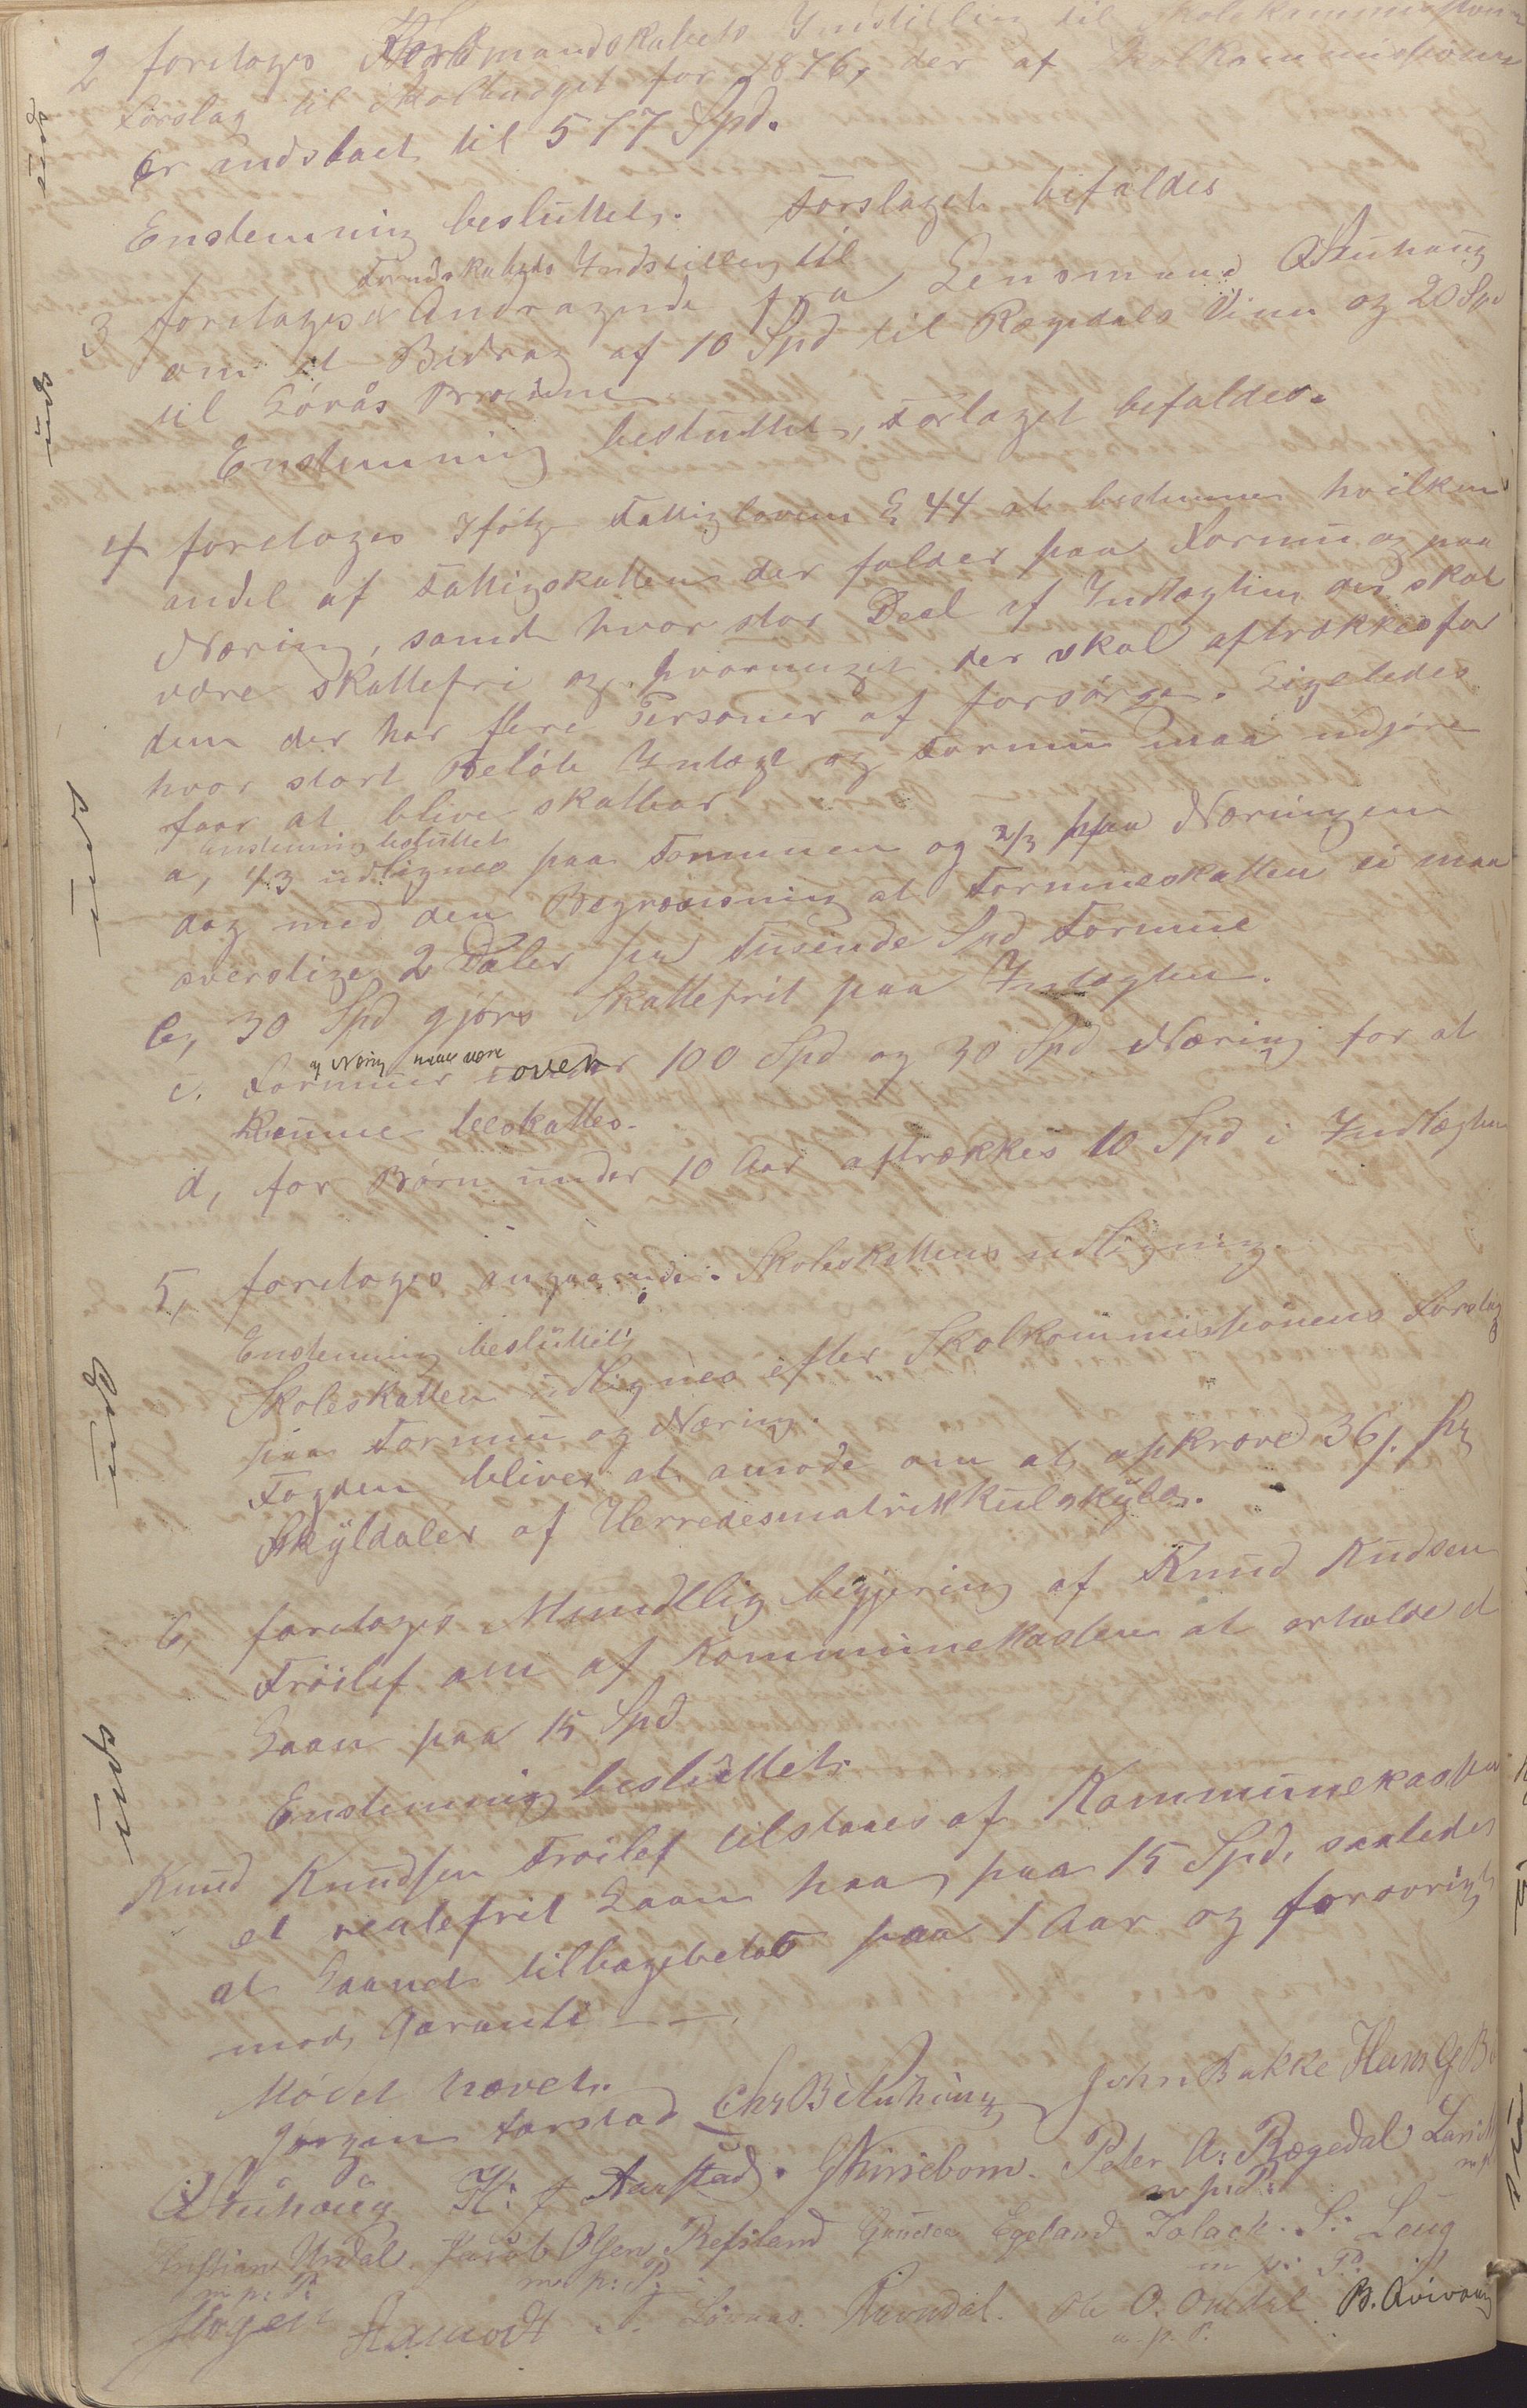 2 foretages Formandskabets Indstilling til Skolekommissionens
Forslag til Skolbudget for 1876, der af Skolkommissionen
er andslaaet til 577 Spd.
Enstemmig besluttet. Forslaget bifaldes
Formdskabets Indstilling til
3 foretages Andragende fra Lensmand Stuhaug
om et Bidrag af 10 Spd til Rægedals Veien og 20 Spd
til Løvås Broerne
Enstemmig besluttet, Forlaget befaldes.
4 foretages Ifølg Fattiglovens § 44 at bestemme hvilken
andel af Fattigskatten der falder paa Formue og paa
Næring, samt hvor stor Deel af Indtægten der skal
være skattefri og hvormeget der skal aftrækkes for
dem der har flere Personer af forsørge. Ligeledes
hvor stort Beløb Indtægt og Formue maa udgjøre
foor at blive skatbar.
enstemmig besluttet
a, 1/3 udlignes paa Formuen og 2/3 paa Næringen
dog med den Begrænsning at Formueskatten ei maa
overstige 2 Daler pr Tusinde Spd Formue
b, 30 Spd gjøres Skattefrit paa Indtægten.
og Næring maa være
c. Formuer over 100 Spd og 30 Spd Næring for at
kunne beskattes.
d, for Børn under 10 Aar aftrækkes 10 Spd i Indtægten
5, foretages angaaende Skoleskattens udligning.
Enstemmig besluttet;
Skoleskatten udlignes efter Skolkommissionens Forslag
paa Formue og Næring.
Fogden bliver at anmode om at opkræve 36 s. pr
Skyldaler af Herredesmatrikkulskyld.
6, foretages Mundtlig begjæring af Knud Knudsen
Trøilef om af Kommunekasten at erholde et
Laan paa 15 Spd
Enstemmig besluttet.
Knud Knudsen Trøilef tilstaaes af Kommunekassen
et rentefrit Laan paa 15 Spd, saaledes
at Laanet tilbagebetales paa 1 Aar og forøvrigt
mod Garanti
Mødet hævet.
Jørgen Tarstad Chr B Stuhaug John Bakke Hans G B
Stuhaug K: J Aarstad. Peter A: Rægedal
m p: P:
Christian Urdal. Jacob Olsen Refsland Gunder Egeland Tolack. S: Loug
m p: P. m. p: P. m p: P.
Aamodt T. Løvaas. Ravndal. Ole O. Omdal
m. p. P.